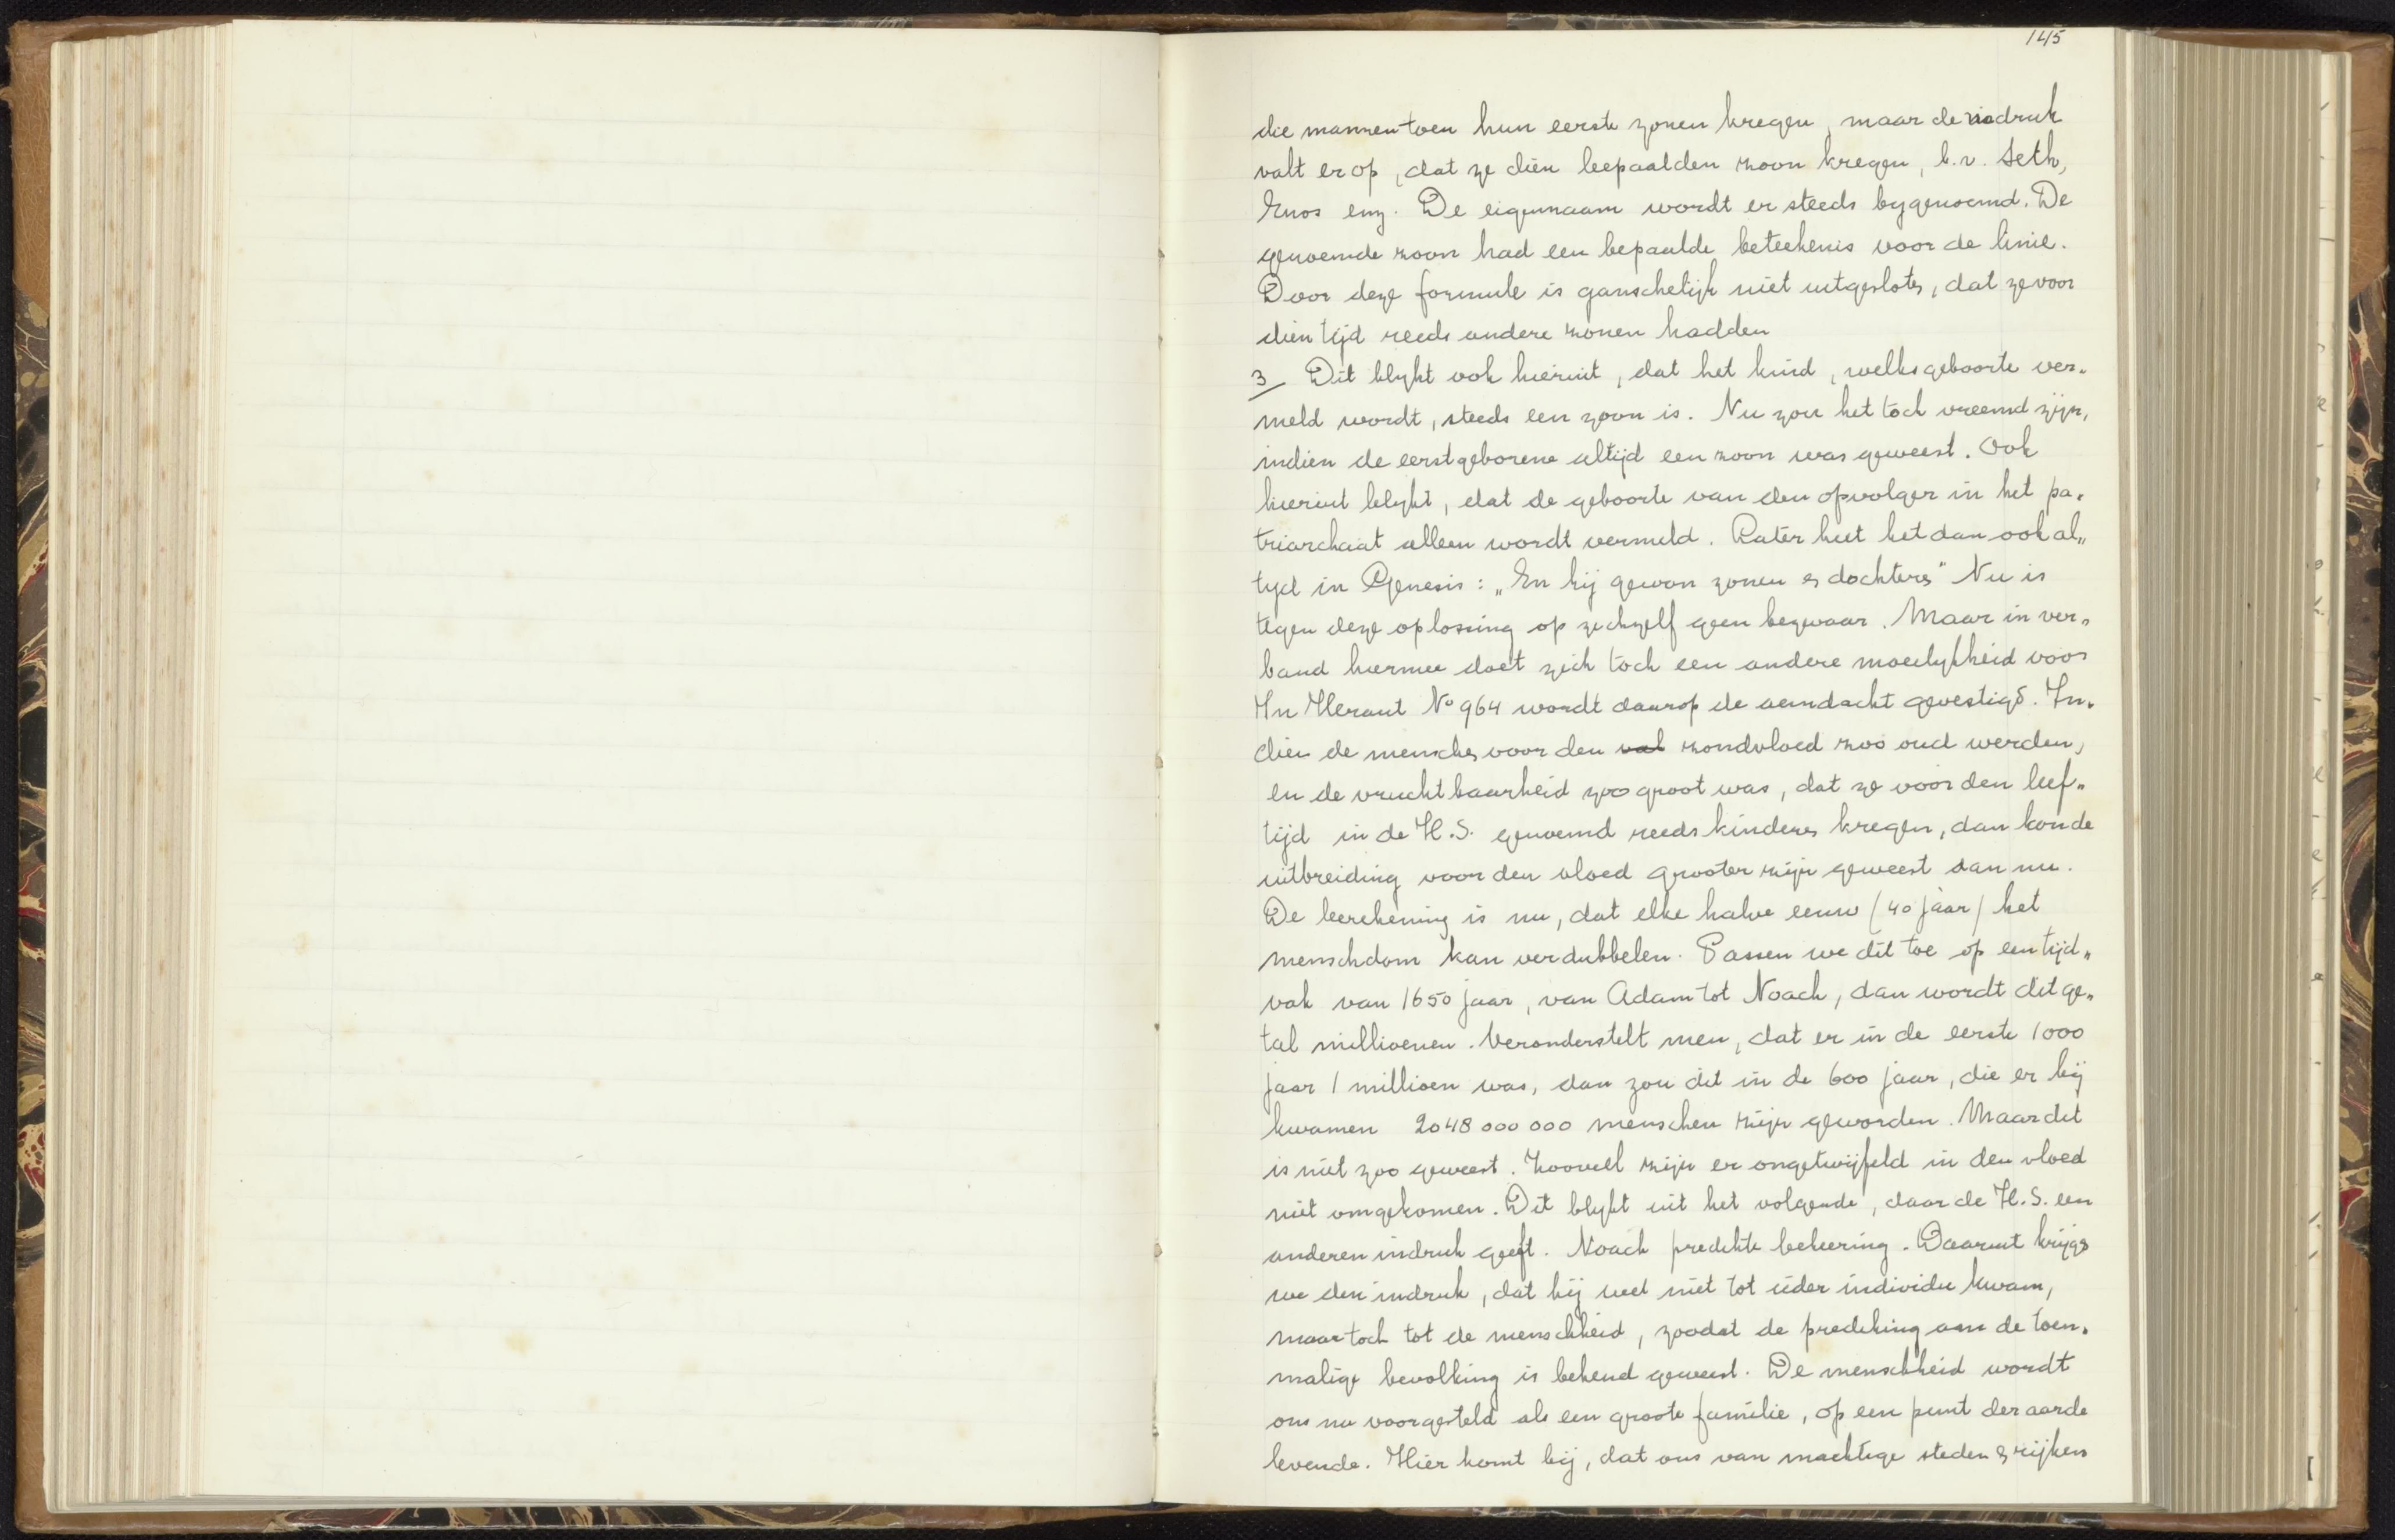 145
die mannen toen hun eerste zonen kregen, maar de nadruk
valt er op, dat ze dien bepaalden zoon kregen, b.v. Seth,
Enos enz. De eigennaam wordt er steeds bygenoemd. De
genoemde zoon had een bepaalde beteekenis voor de linie.
Door deze formule is ganschelijk niet uitgesloten, dat ze voor
dien tijd reeds andere zonen hadden
3 Dit blykt ook hieruit, dat het kind, welks geboorte ver„
meld wordt, steeds een zoon is. Nu zou het toch vreemd zijn,
indien de eerstgeborene altijd een zoon was geweest. Ook
hieruit blykt, dat de geboorte van den opvolger in het pa„
triarchaat alleen wordt vermeld. Later heet het dan ook al„
tyd in Genesis: „En hij gewon zonen en dochteren" Nu is
tegen deze oplossing op zichzelf geen bezwaar. Maar in ver„
band hiermee doet zich toch een andere moeilykheid voor
In Heraut No 964 wordt daarop de aandacht gevestigd. In„
dien de menschen voor den val zondvloed zoo oud werden,
en de vruchtbaarheid zoo groot was, dat ze vóór den leef„
tijd in de H.S. genoemd reeds kinderen kregen, dan kon de
uitbreiding voor den vloed grooter zijn geweest dan nu.
De berekening is nu, dat elke halve eeuw (40 jaar) het
menschdom kan verdubbelen. Passen we dit toe op een tijd„
vak van 1650 jaar, van Adam tot Noach, dan wordt dit ge„
tal millioenen. Veronderstelt men, dat er in de eerste 1000
jaar 1 millioen was, dan zou dit in de 600 jaar, die er bij
kwamen 2048 000 000 menschen zijn geworden. Maar dit
is niet zoo geweest. Zooveel zijn er ongetwijfeld in den vloed
niet omgekomen. Dit blykt uit het volgende, daar de H.S. een
anderen indruk geeft. Noach predikte bekeering. Daaruit krijgen
we den indruk, dat hij wel niet tot ieder individu kwam,
maar toch tot de menschheid, zoodat de prediking aan de toen„
malige bevolking is bekend geweest. De menschheid wordt
ons nu voorgesteld als een groote familie, op een punt der aarde
levende. Hier komt bij, dat ons van machtige steden en rijken